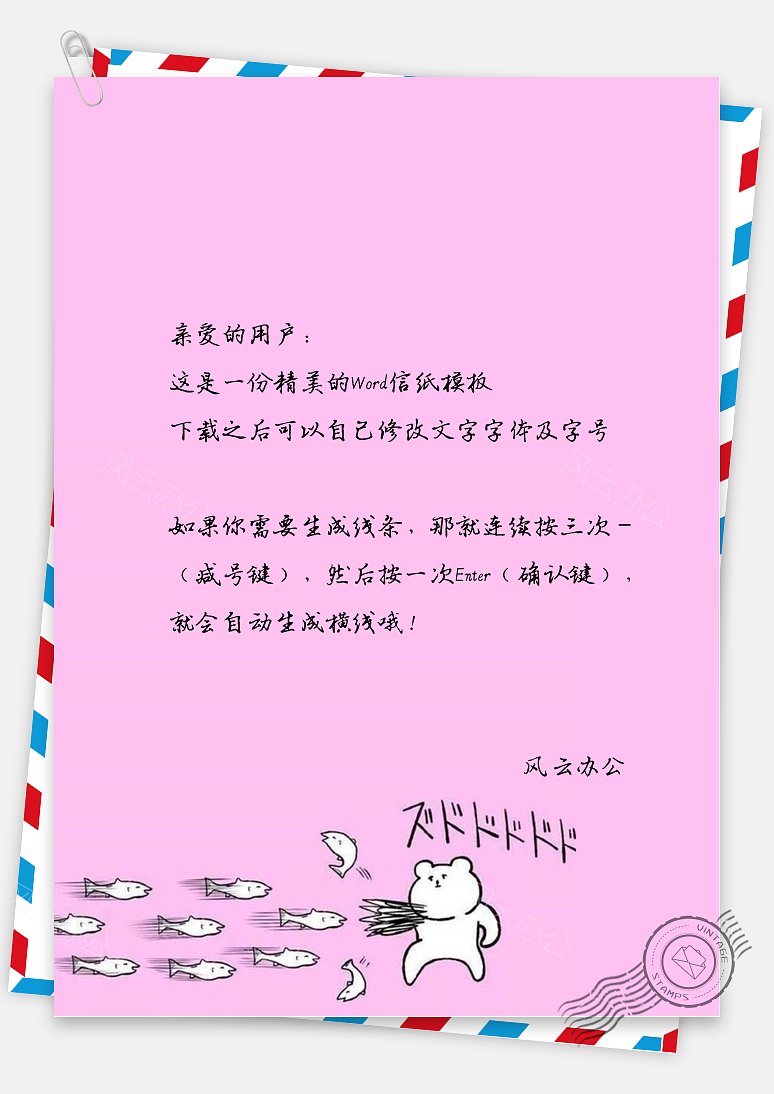 亲爱的用户：
这是一份精美的Word信纸模板
下载之后可以自己修改文字字体及字号
如果你需要生成线条，那就连续按三次－
（减号键），然后按一次Enter（确认键），
就会自动生成横线哦！
风云办公
ズドドドドド
VINTAGE
STAMPS
风云办公
风云办公
风云办公